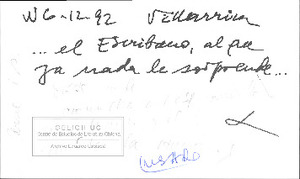 6-12-92 Villarrica
... el Escribano, al que
ya nada le sorprende...
CELICH UC
Centro de Estudios de Literatura Chilena